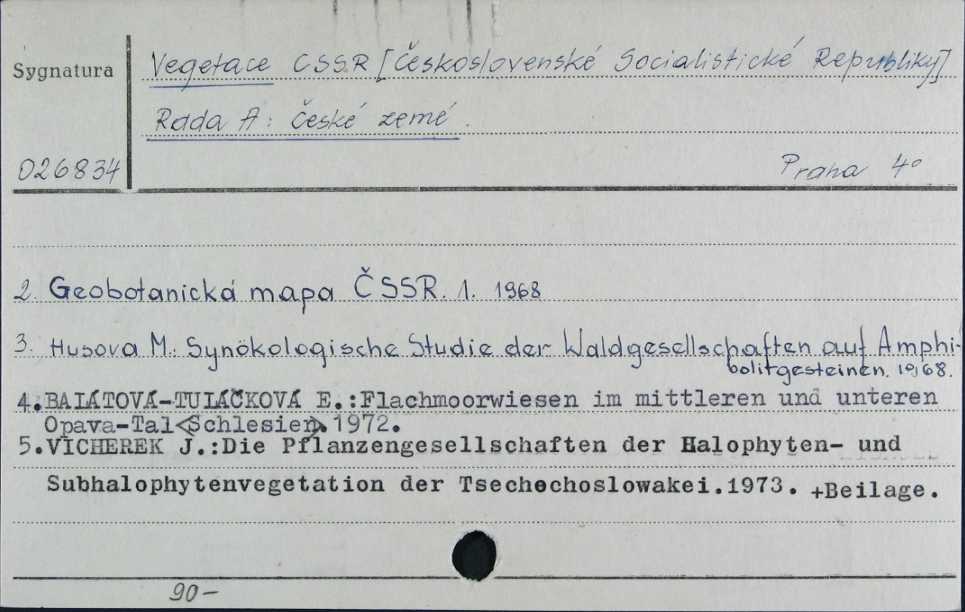 Sygnatura
Vegetace ČSSR [Československé Socialistické Republiky]
Řada A: České země.
026834
Praha 4°
2. Geobotanická mapa ČSSR. 1. 1968
3. Husova M.: Synökologische Studie der Waldgesellschaften auf Amphi-
bolitgesteinen. 1968.
4. BALÁTOVÁ-TULÁČKOVÁ E.: Flachmoorwiesen im mittleren und unteren
Opava-Tal <Schlesien>. 1972.
5. VICHEREK J.: Die Pflanzengesellschaften der Halophyten- und
Subhalophytenvegetation der Tsechechoslowakei. 1973. +Beilage.
90-